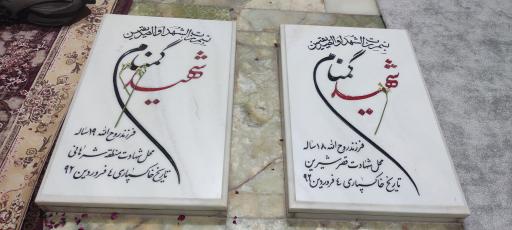 بسم رب الشهداء و الصدیقین
شهید گمنام
فرزند روح الله ۱۹ ساله
محل شهادت منطقه شرهانی
تاریخ خاکسپاری ۴ فروردین ۹۲
بسم رب الشهداء و الصدیقین
شهید گمنام
فرزند روح الله ۱۸ ساله
محل شهادت قصر شیرین
تاریخ خاکسپاری ۴ فروردین ۹۲